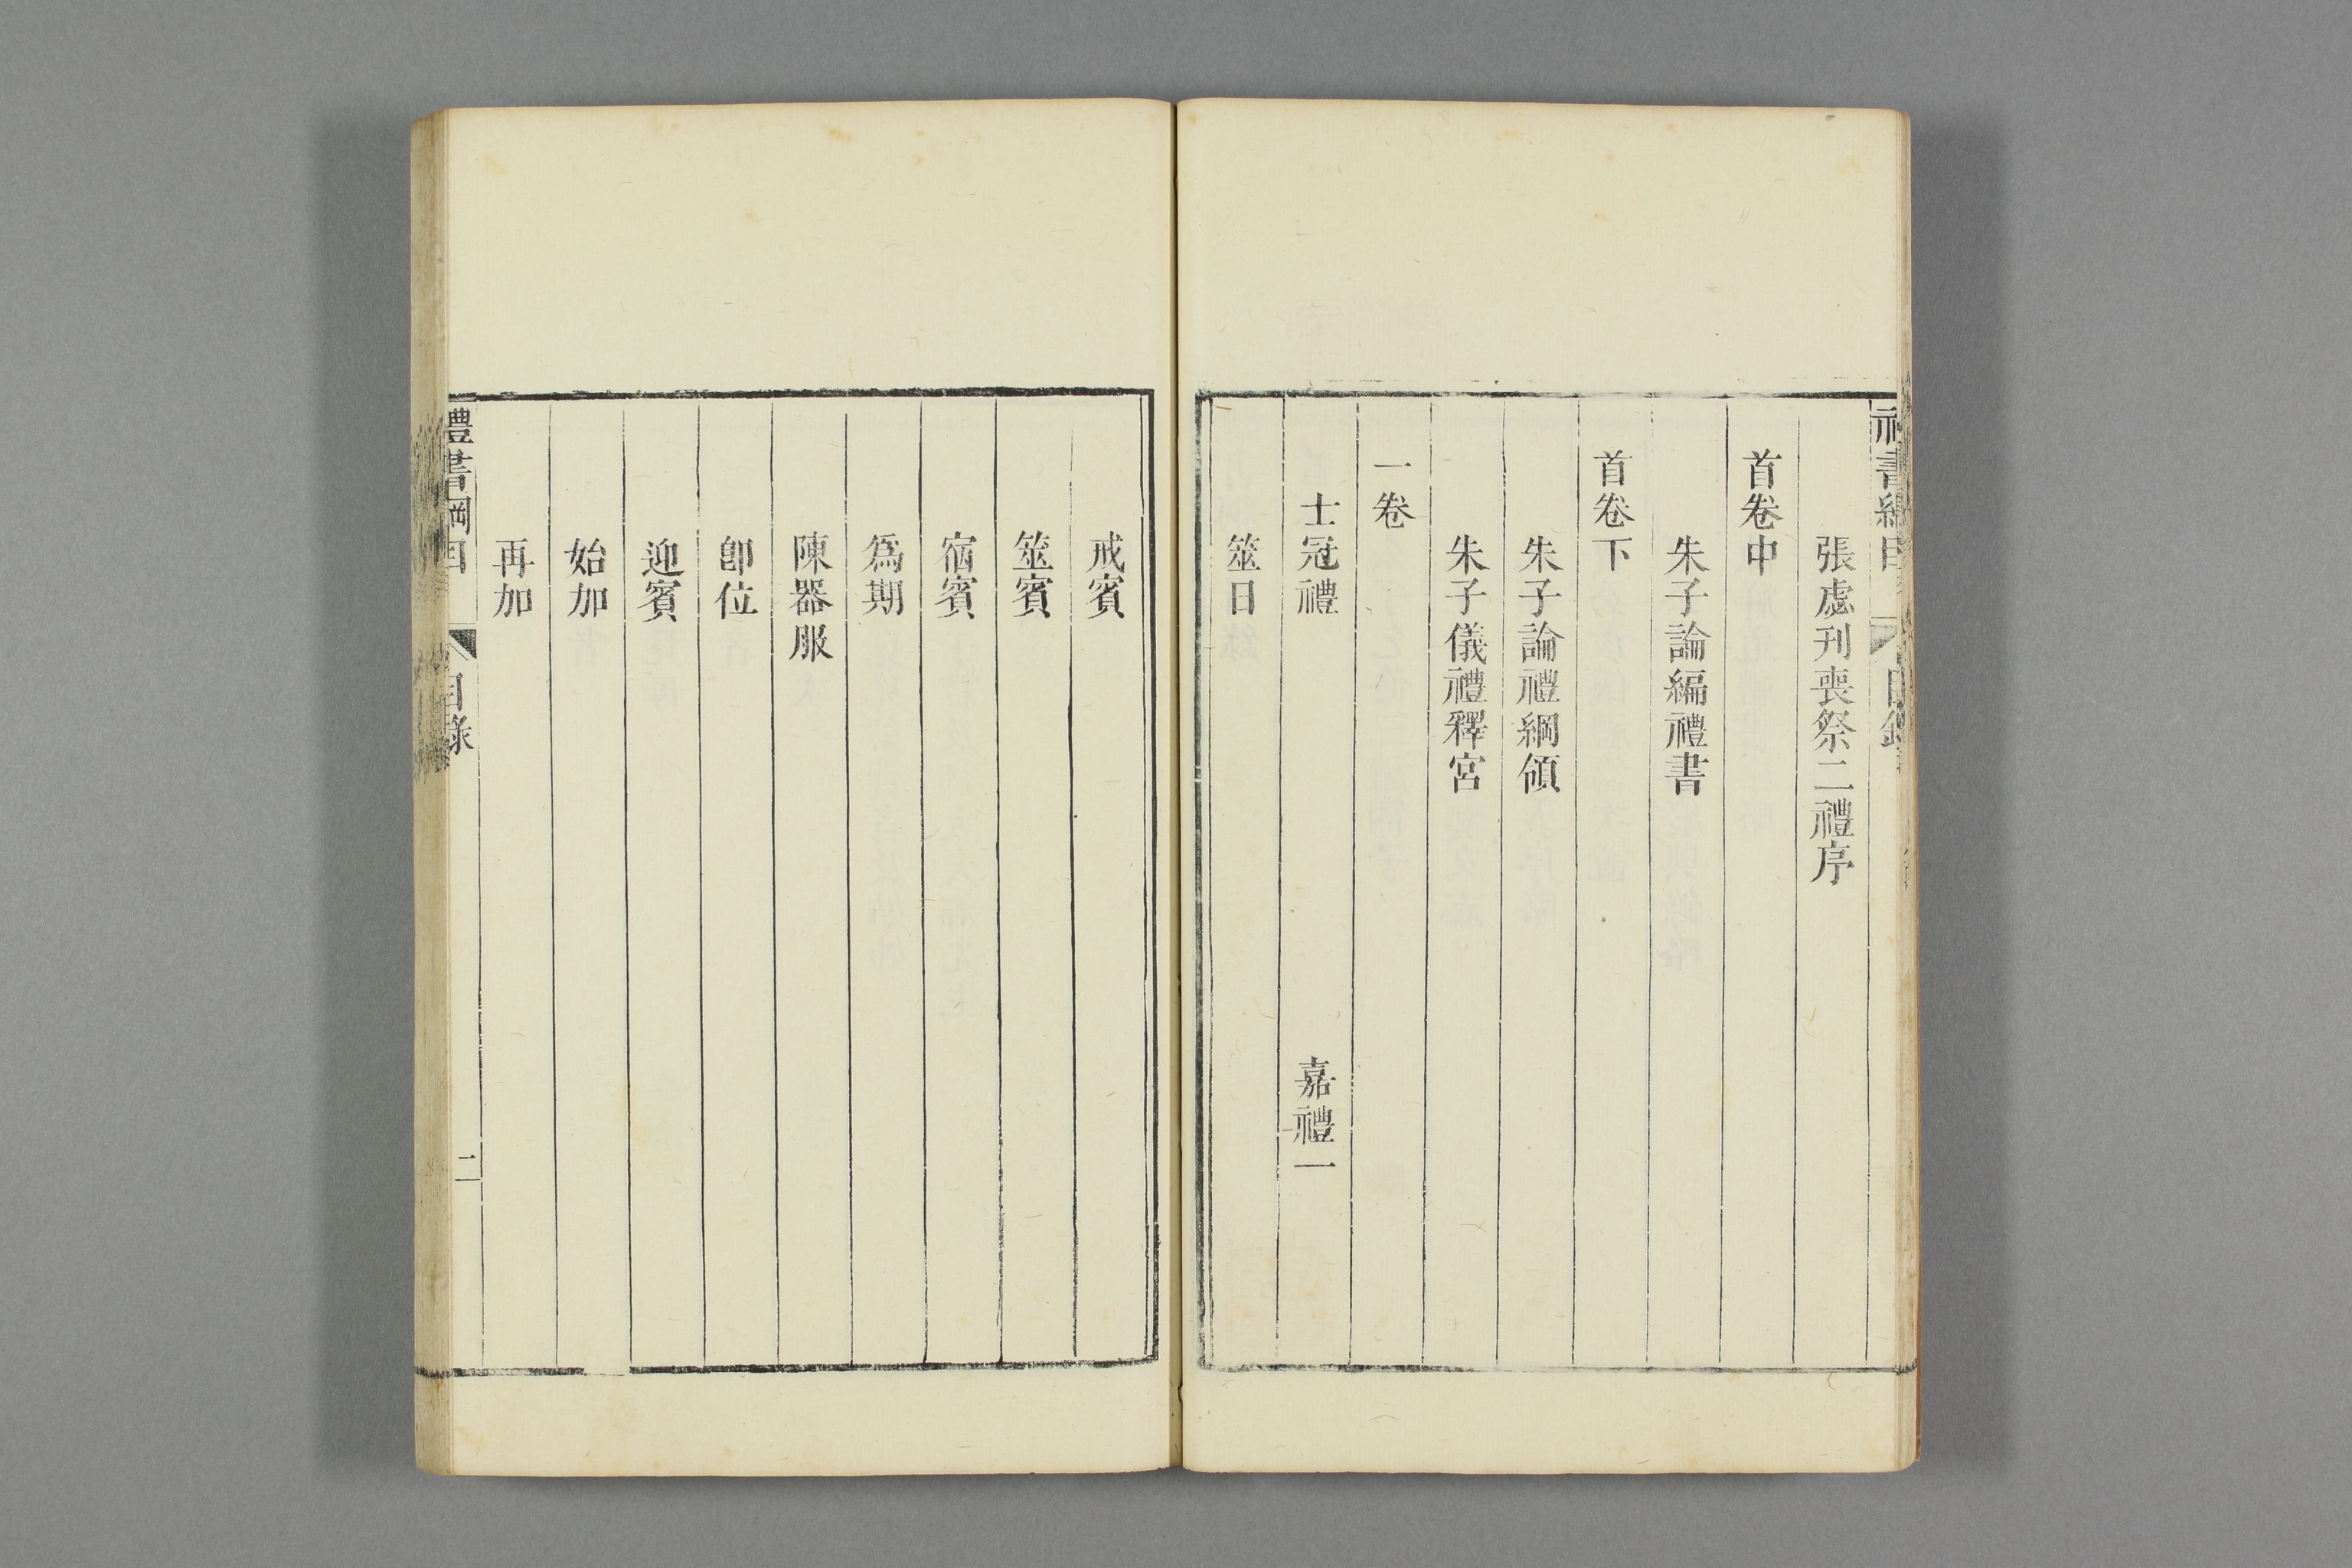 張虙刊喪祭二禮序
首卷中
朱子論編禮書
首卷下
朱子論禮綱領
朱子儀禮釋宮
一卷
士冠禮 嘉禮一
筮日
戒賓
筮賓
宿賓
爲期
陳器服
卽位
迎賓
始加
再加
禮書綱目 目錄 二